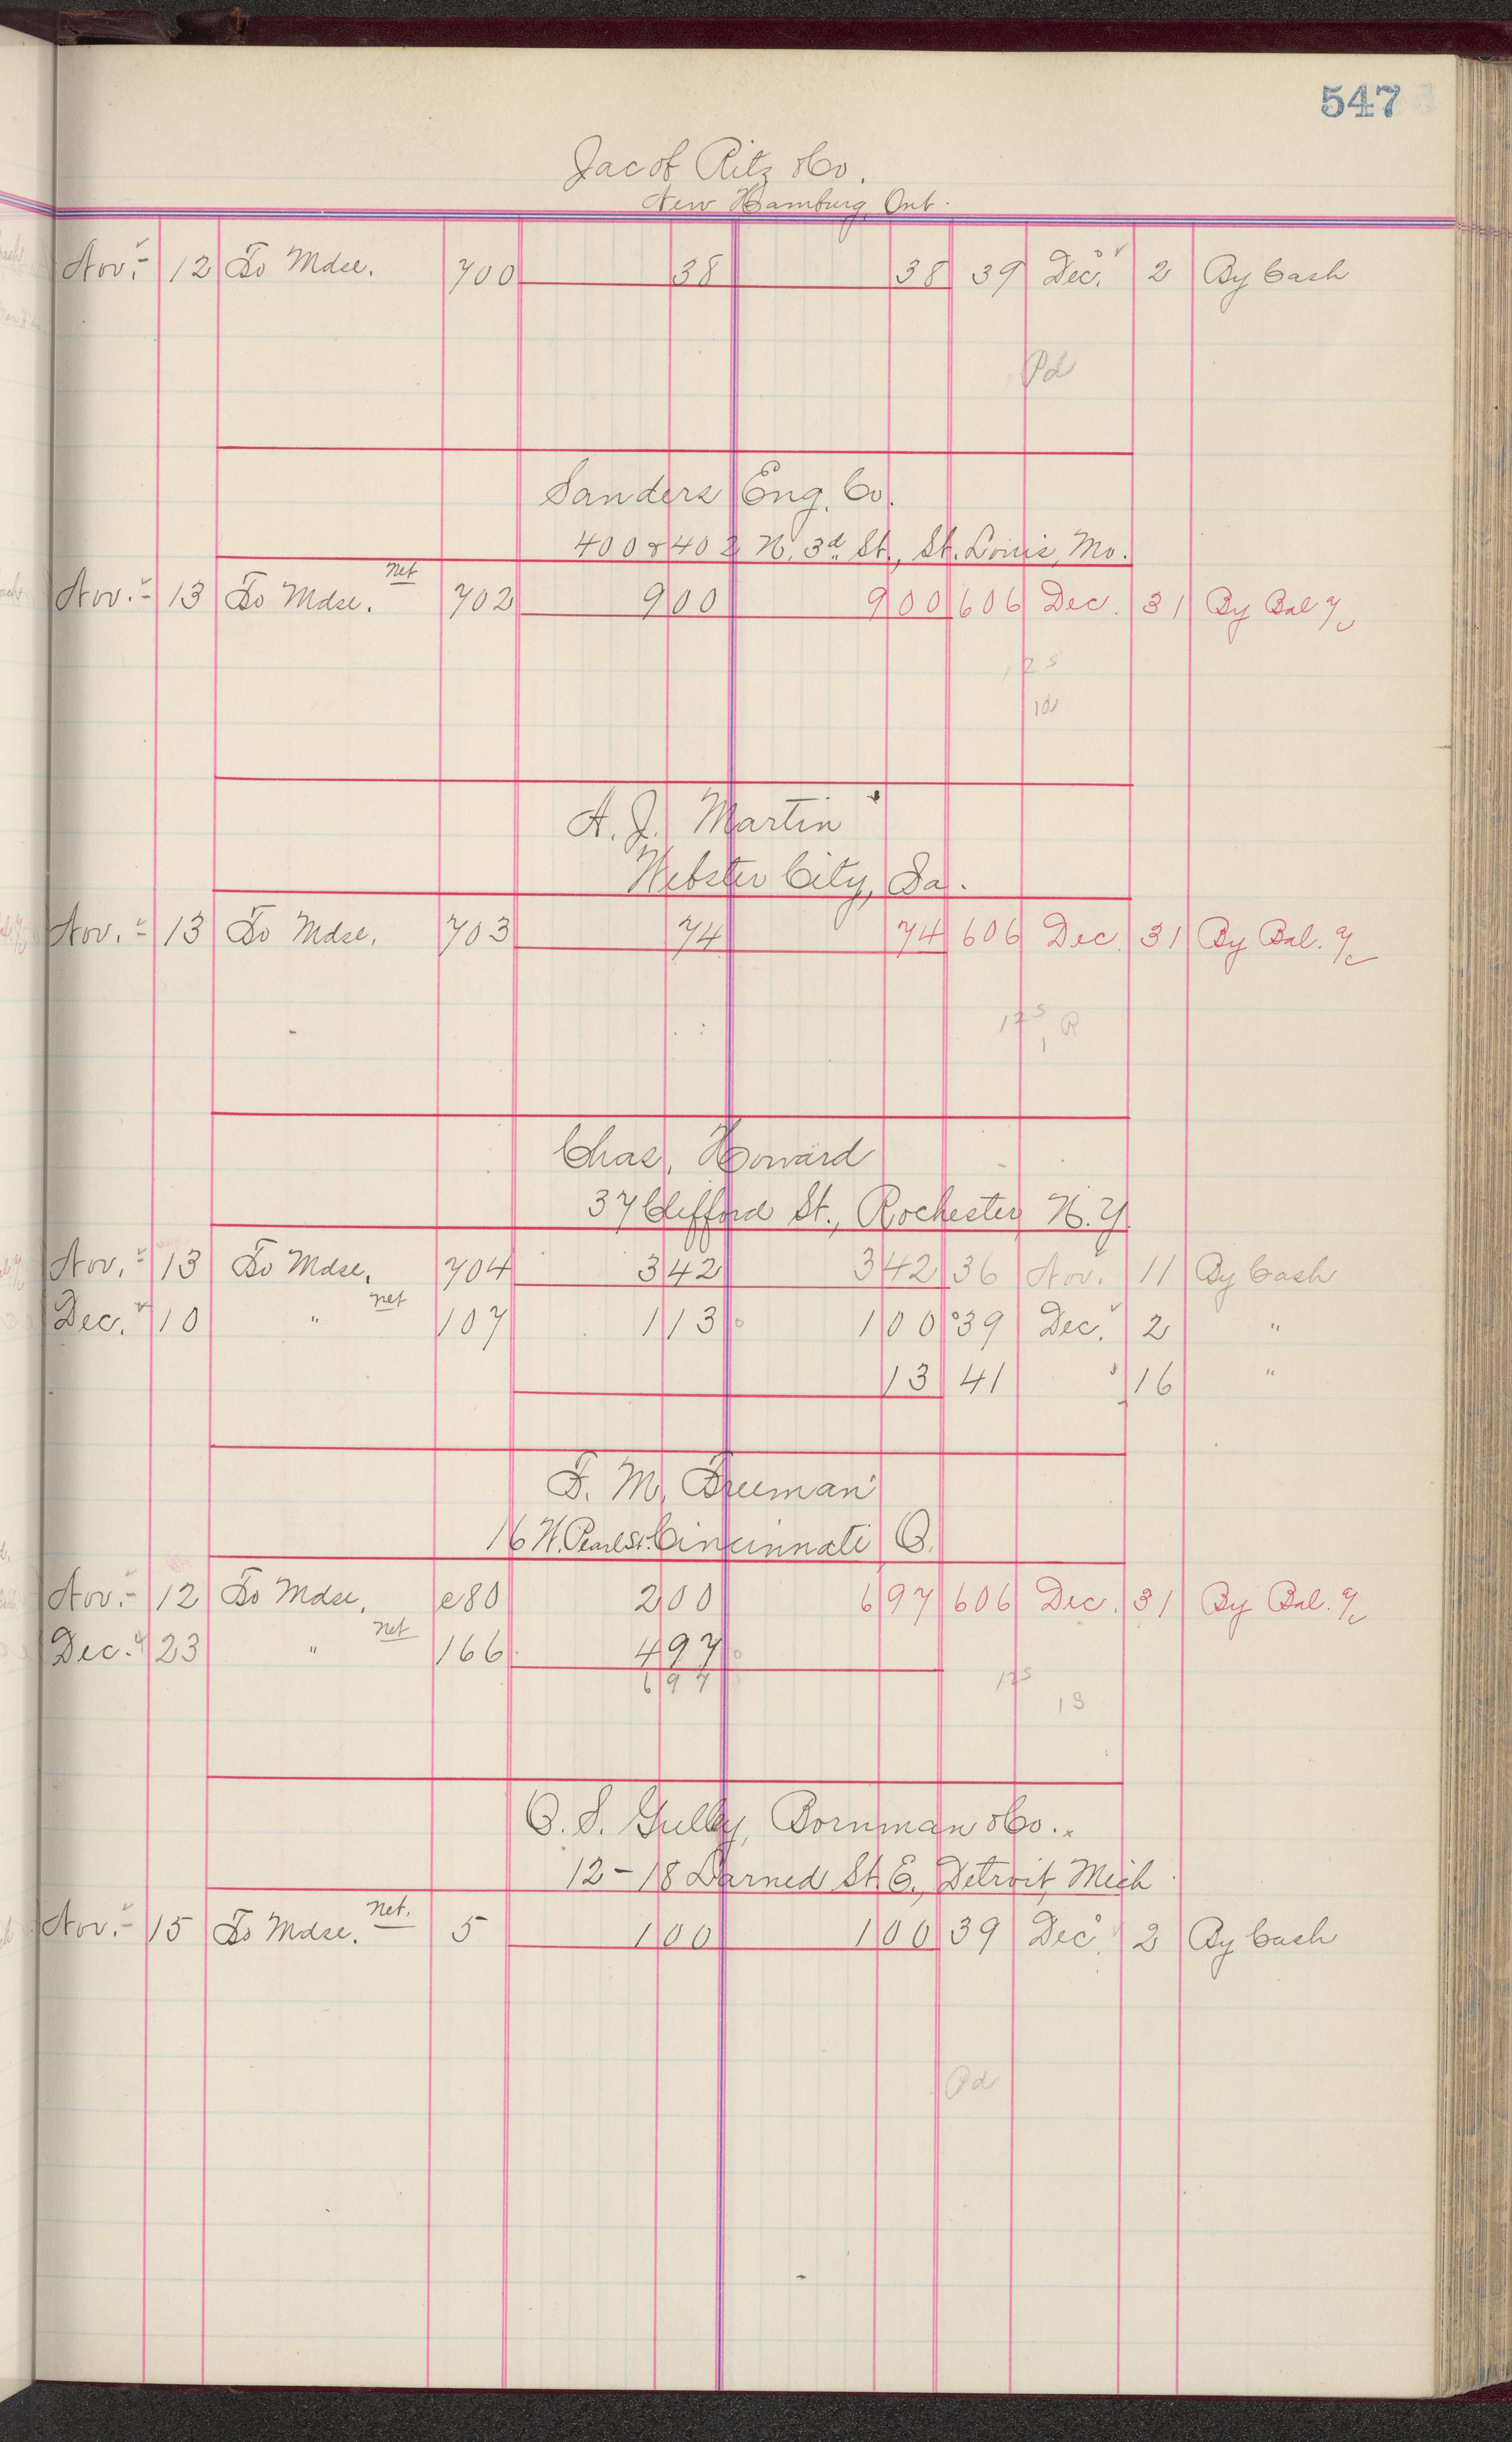 547
Jacob Ritz & Co.
New Hamburg, Ont.
Nov. 12 To Mdse. 700 38 38 39 Dec. 2 By Cash
Pd
Sanders Eng. Co.
400 & 402 N. 3d St., St. Louis, Mo.
Nov. 13 To Mdse. net 702 900 900 606 Dec. 31 By Bal a/c
A. J. Martin
Webster City, Ia.
Nov. 13 To Mdse. 703 74 74 606 Dec. 31 By Bal. a/c
Chas. Howard
37 Clifford St., Rochester, N.Y.
Nov. 13 To Mdse. 704 342 342 36 Nov. 11 By Cash
Dec. 10 " net 107 113 100 39 Dec. 2 "
13 41 16 "
F. M. Freeman
16 W. Pearl St. Cincinnati O.
Nov. 12 To Mdse. e80 200 697 606 Dec. 31 By Bal. a/c
Dec. 23 " net 166 497
697
O. S. Gulley, Bornman & Co.
12-18 Larned St. E., Detroit, Mich
Nov. 15 To Mdse. net. 5 100 100 39 Dec. 2 By Cash
Pd